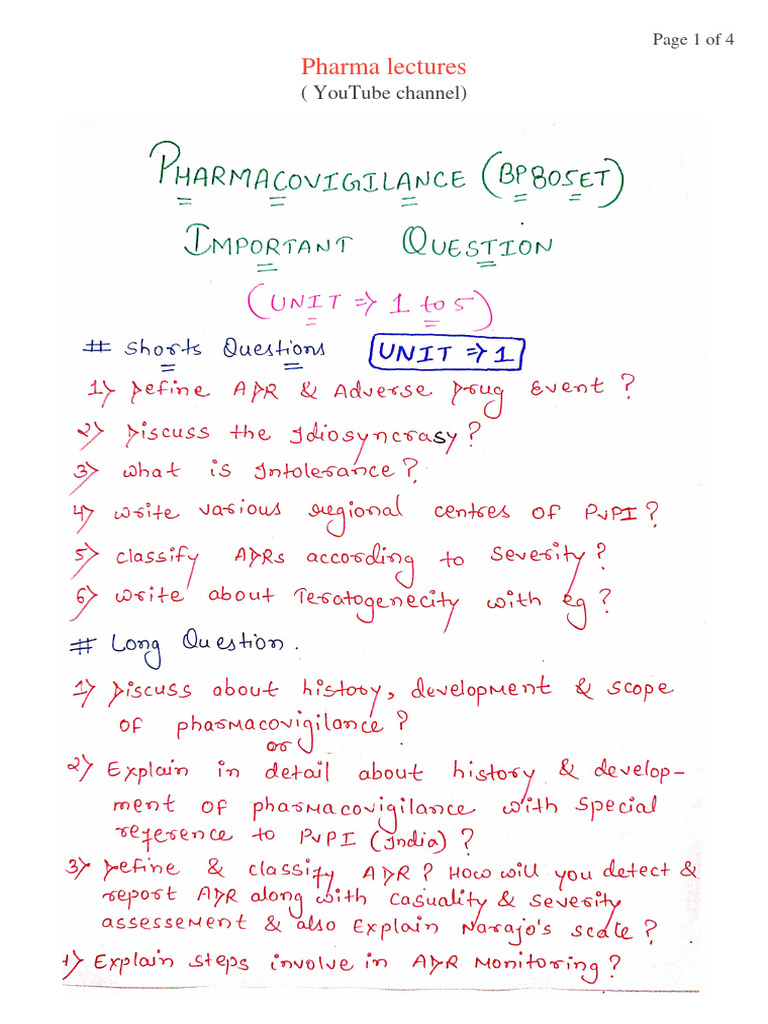 Page 1 of 4
Pharma lectures
( YouTube channel)
PHARMACOVIGILANCE (BP805ET)
IMPORTANT QUESTION
(UNIT ⇒ 1 to 5)
# Shorts Questions UNIT ⇒ 1
1) Define ADR & Adverse Drug Event ?
2) Discuss the Idiosyncrasy ?
3) What is Intolerance ?
4) Write various regional centres of PvPI ?
5) Classify ADRs according to Severity ?
6) Write about Teratogenecity with eg ?
# Long Question.
1) Discuss about history, development & scope
of pharmacovigilance ?
or
2) Explain in detail about history & develop-
ment of pharmacovigilance with special
reference to PvPI (India) ?
3) Define & classify ADR ? How will you detect &
report ADR along with Casuality & severity
assessement & also Explain Narajo's scale ?
4) Explain steps involve in ADR Monitoring ?